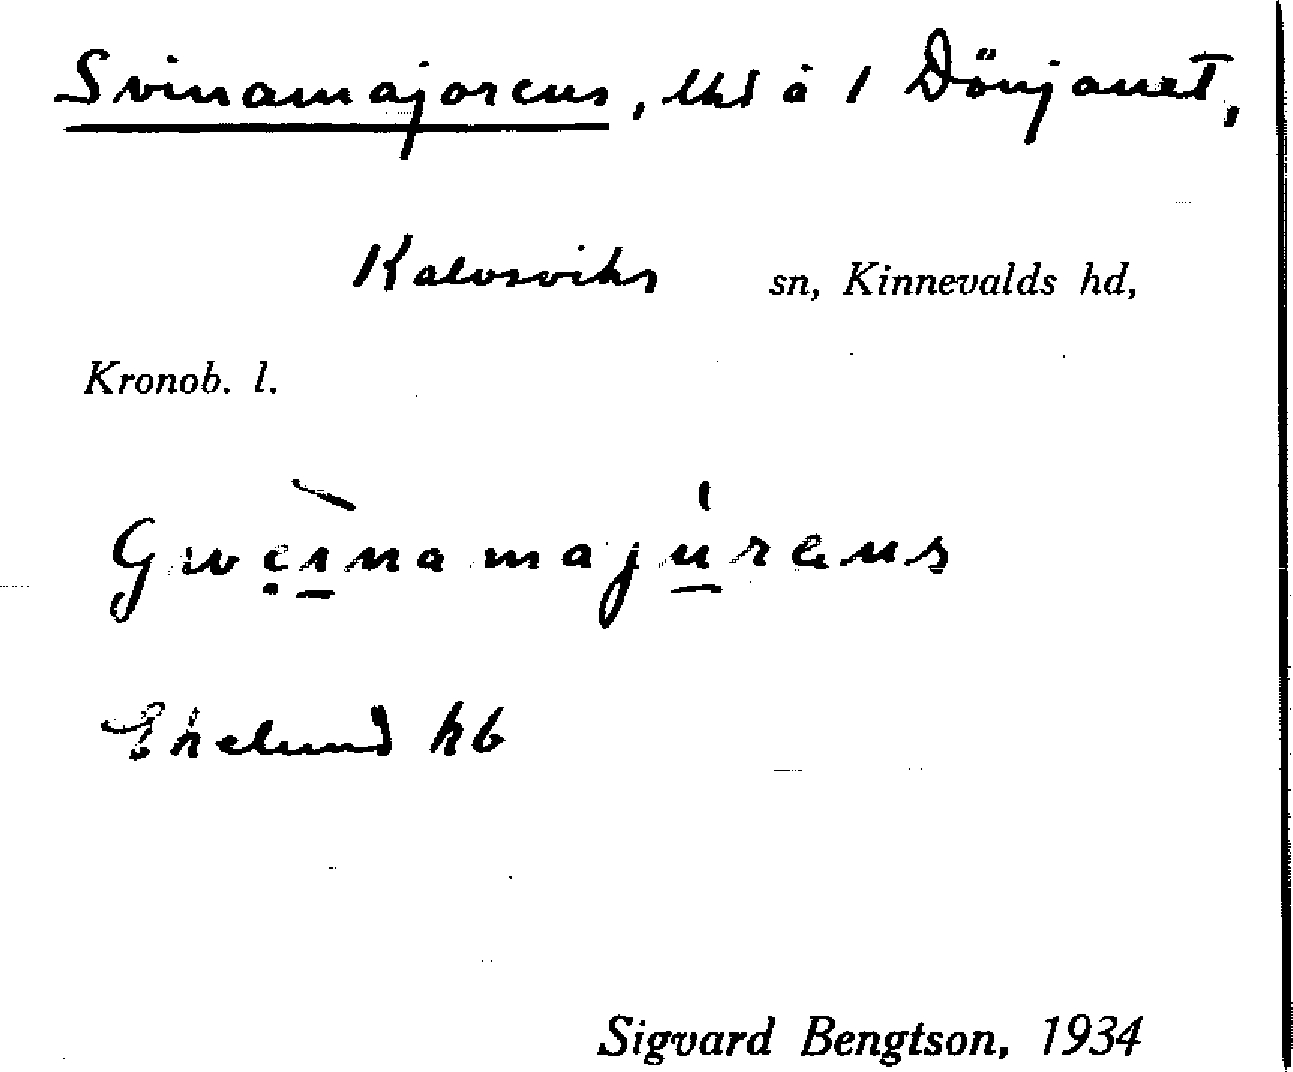 Svinamajorens, lhd å 1 Dönjanet,
Kalvsviks sn, Kinnevalds hd,
Kronob. l.
Gweinamajúrens
Ekelund hb
Sigvard Bengtson, 1934